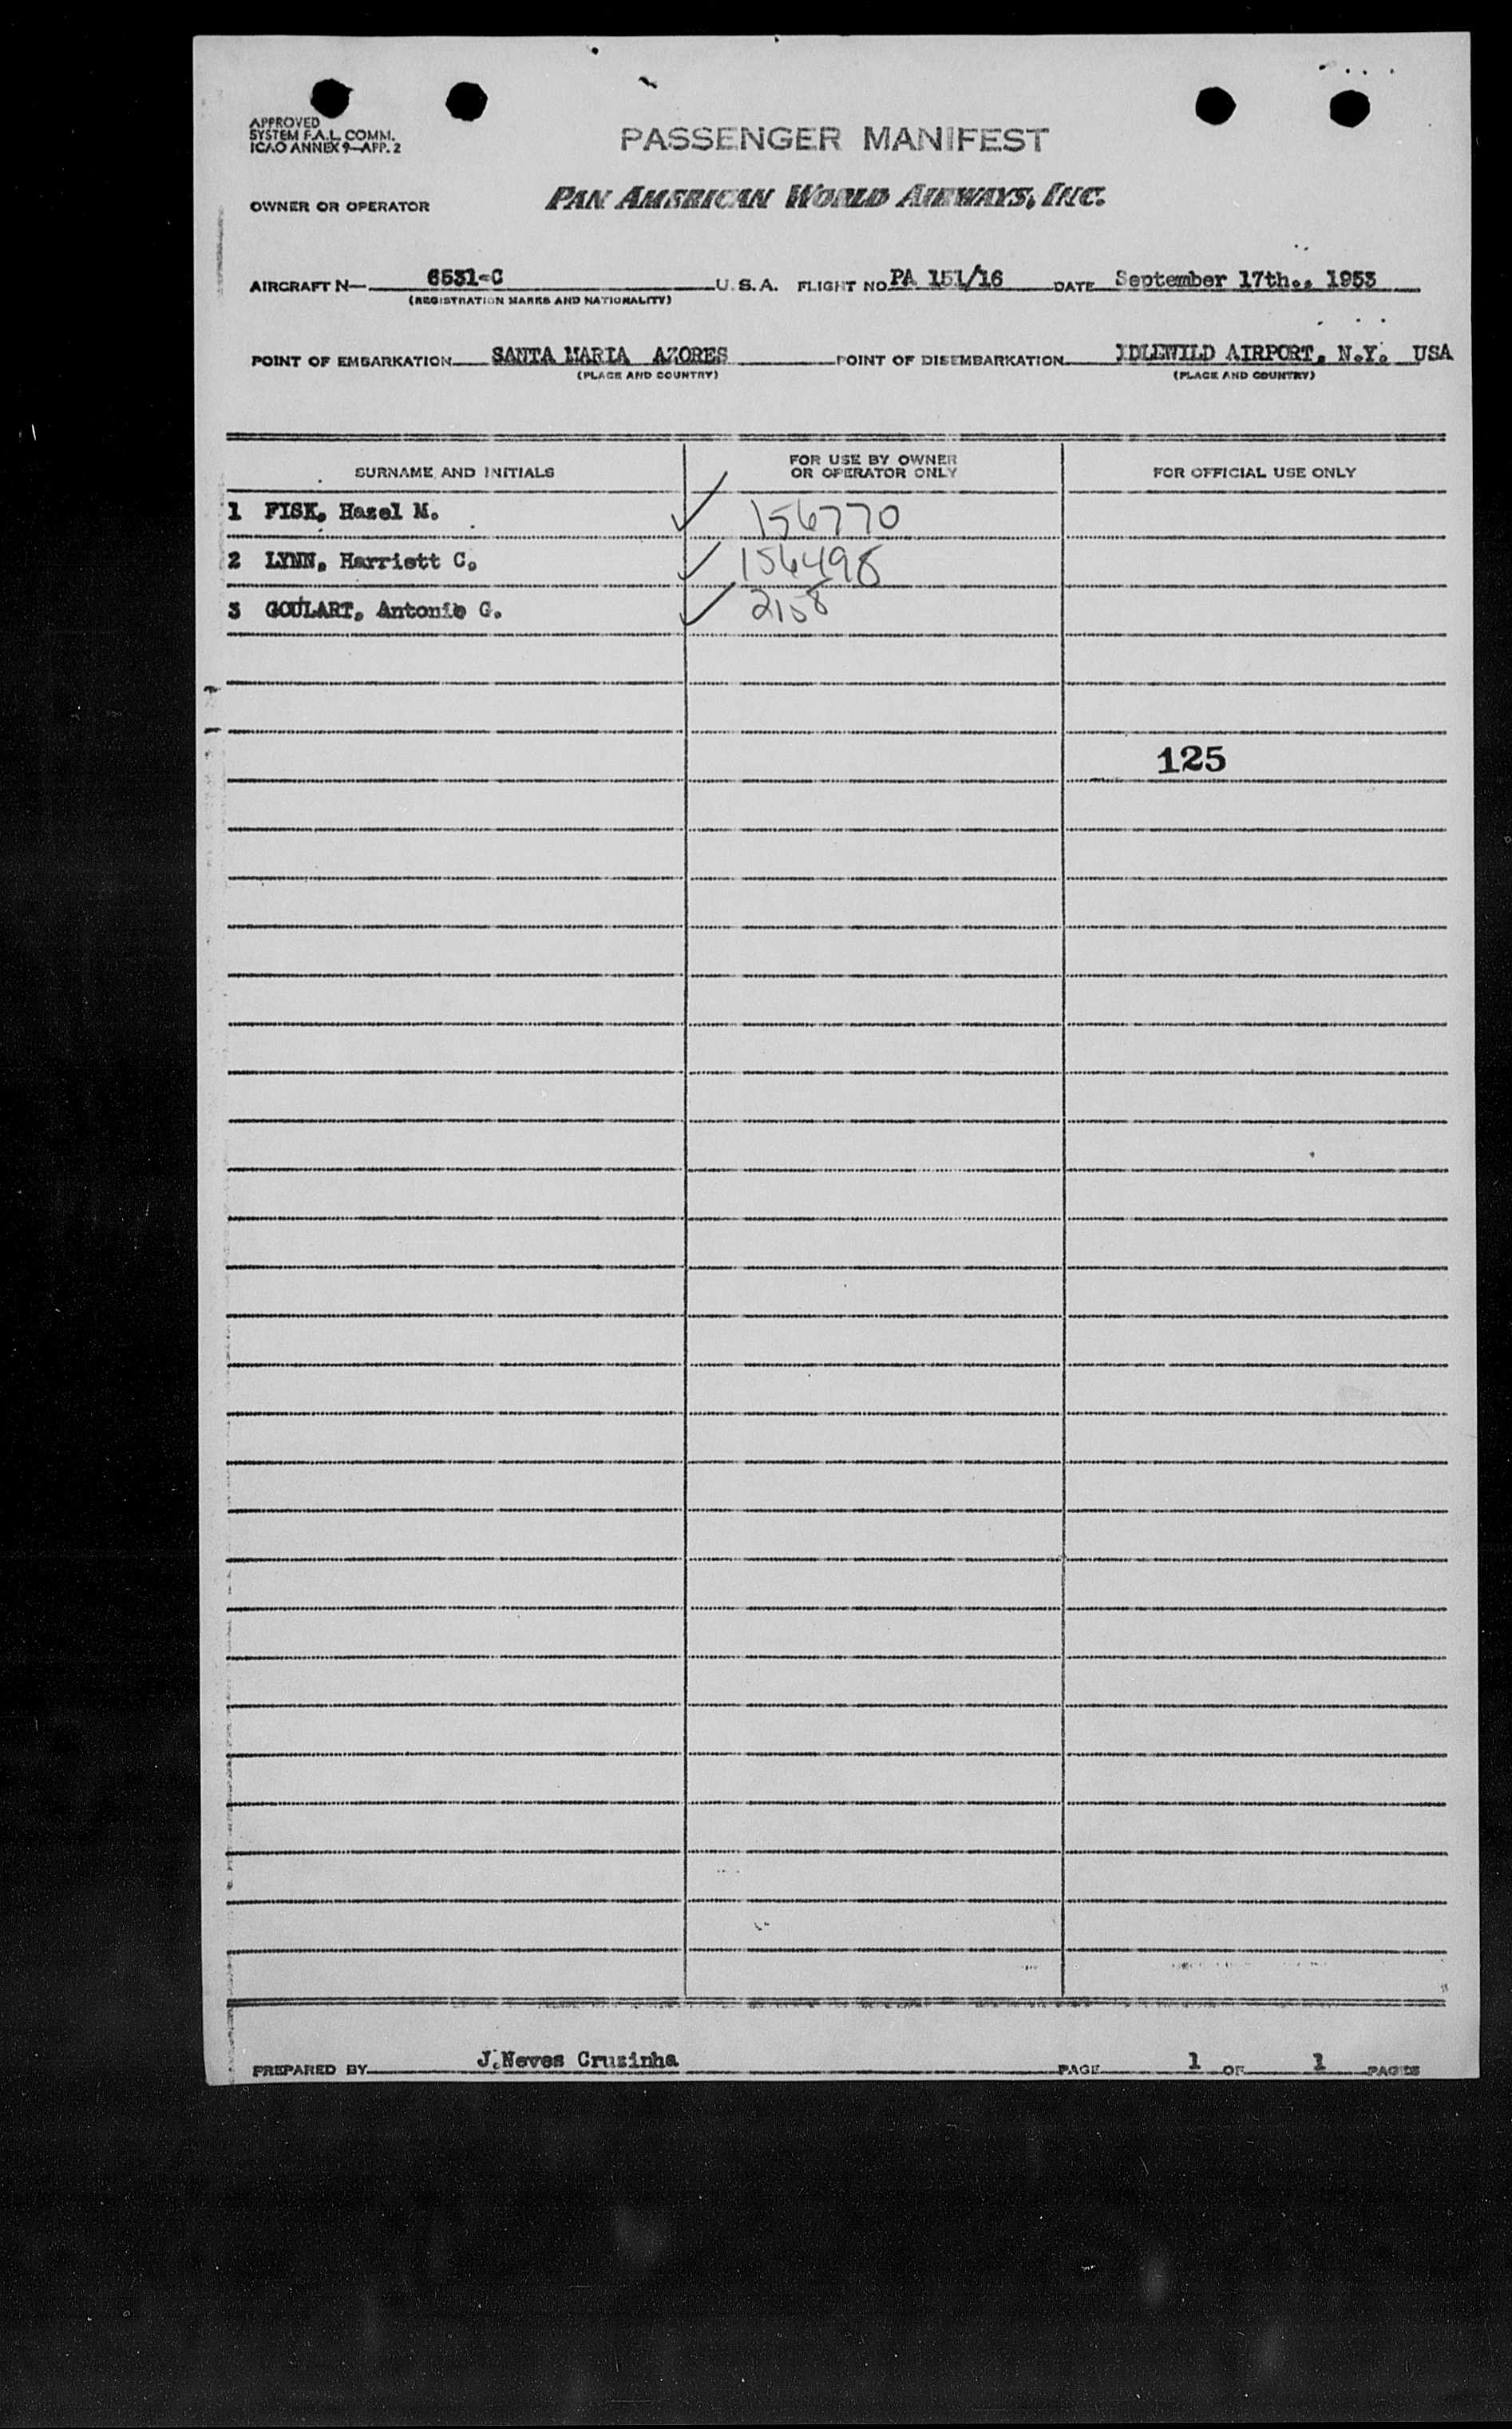 APPROVED
SYSTEM F.A.L. COMM.
ICAO ANNEX 9-APP. 2
PASSENGER MANIFEST
OWNER OR OPERATOR PAN AMERICAN WORLD AIRWAYS, INC.
AIRCRAFT N- 6531-C U.S.A. FLIGHT NO. PA 151/16 DATE September 17th., 1953
(REGISTRATION MARKS AND NATIONALITY)
POINT OF EMBARKATION SANTA MARIA AZORES POINT OF DISEMBARKATION IDLEWILD AIRPORT, N.Y. USA
(PLACE AND COUNTRY) (PLACE AND COUNTRY)
SURNAME AND INITIALS FOR USE BY OWNER OR OPERATOR ONLY FOR OFFICIAL USE ONLY
1 FISK, Hazel M. ✓ 156770
2 LYNN, Harriett C. ✓ 156498
3 GOULART, Antonio G. ✓ 2158
125
PREPARED BY J.Neves Cruzinha PAGE 1 OF 1 PAGES